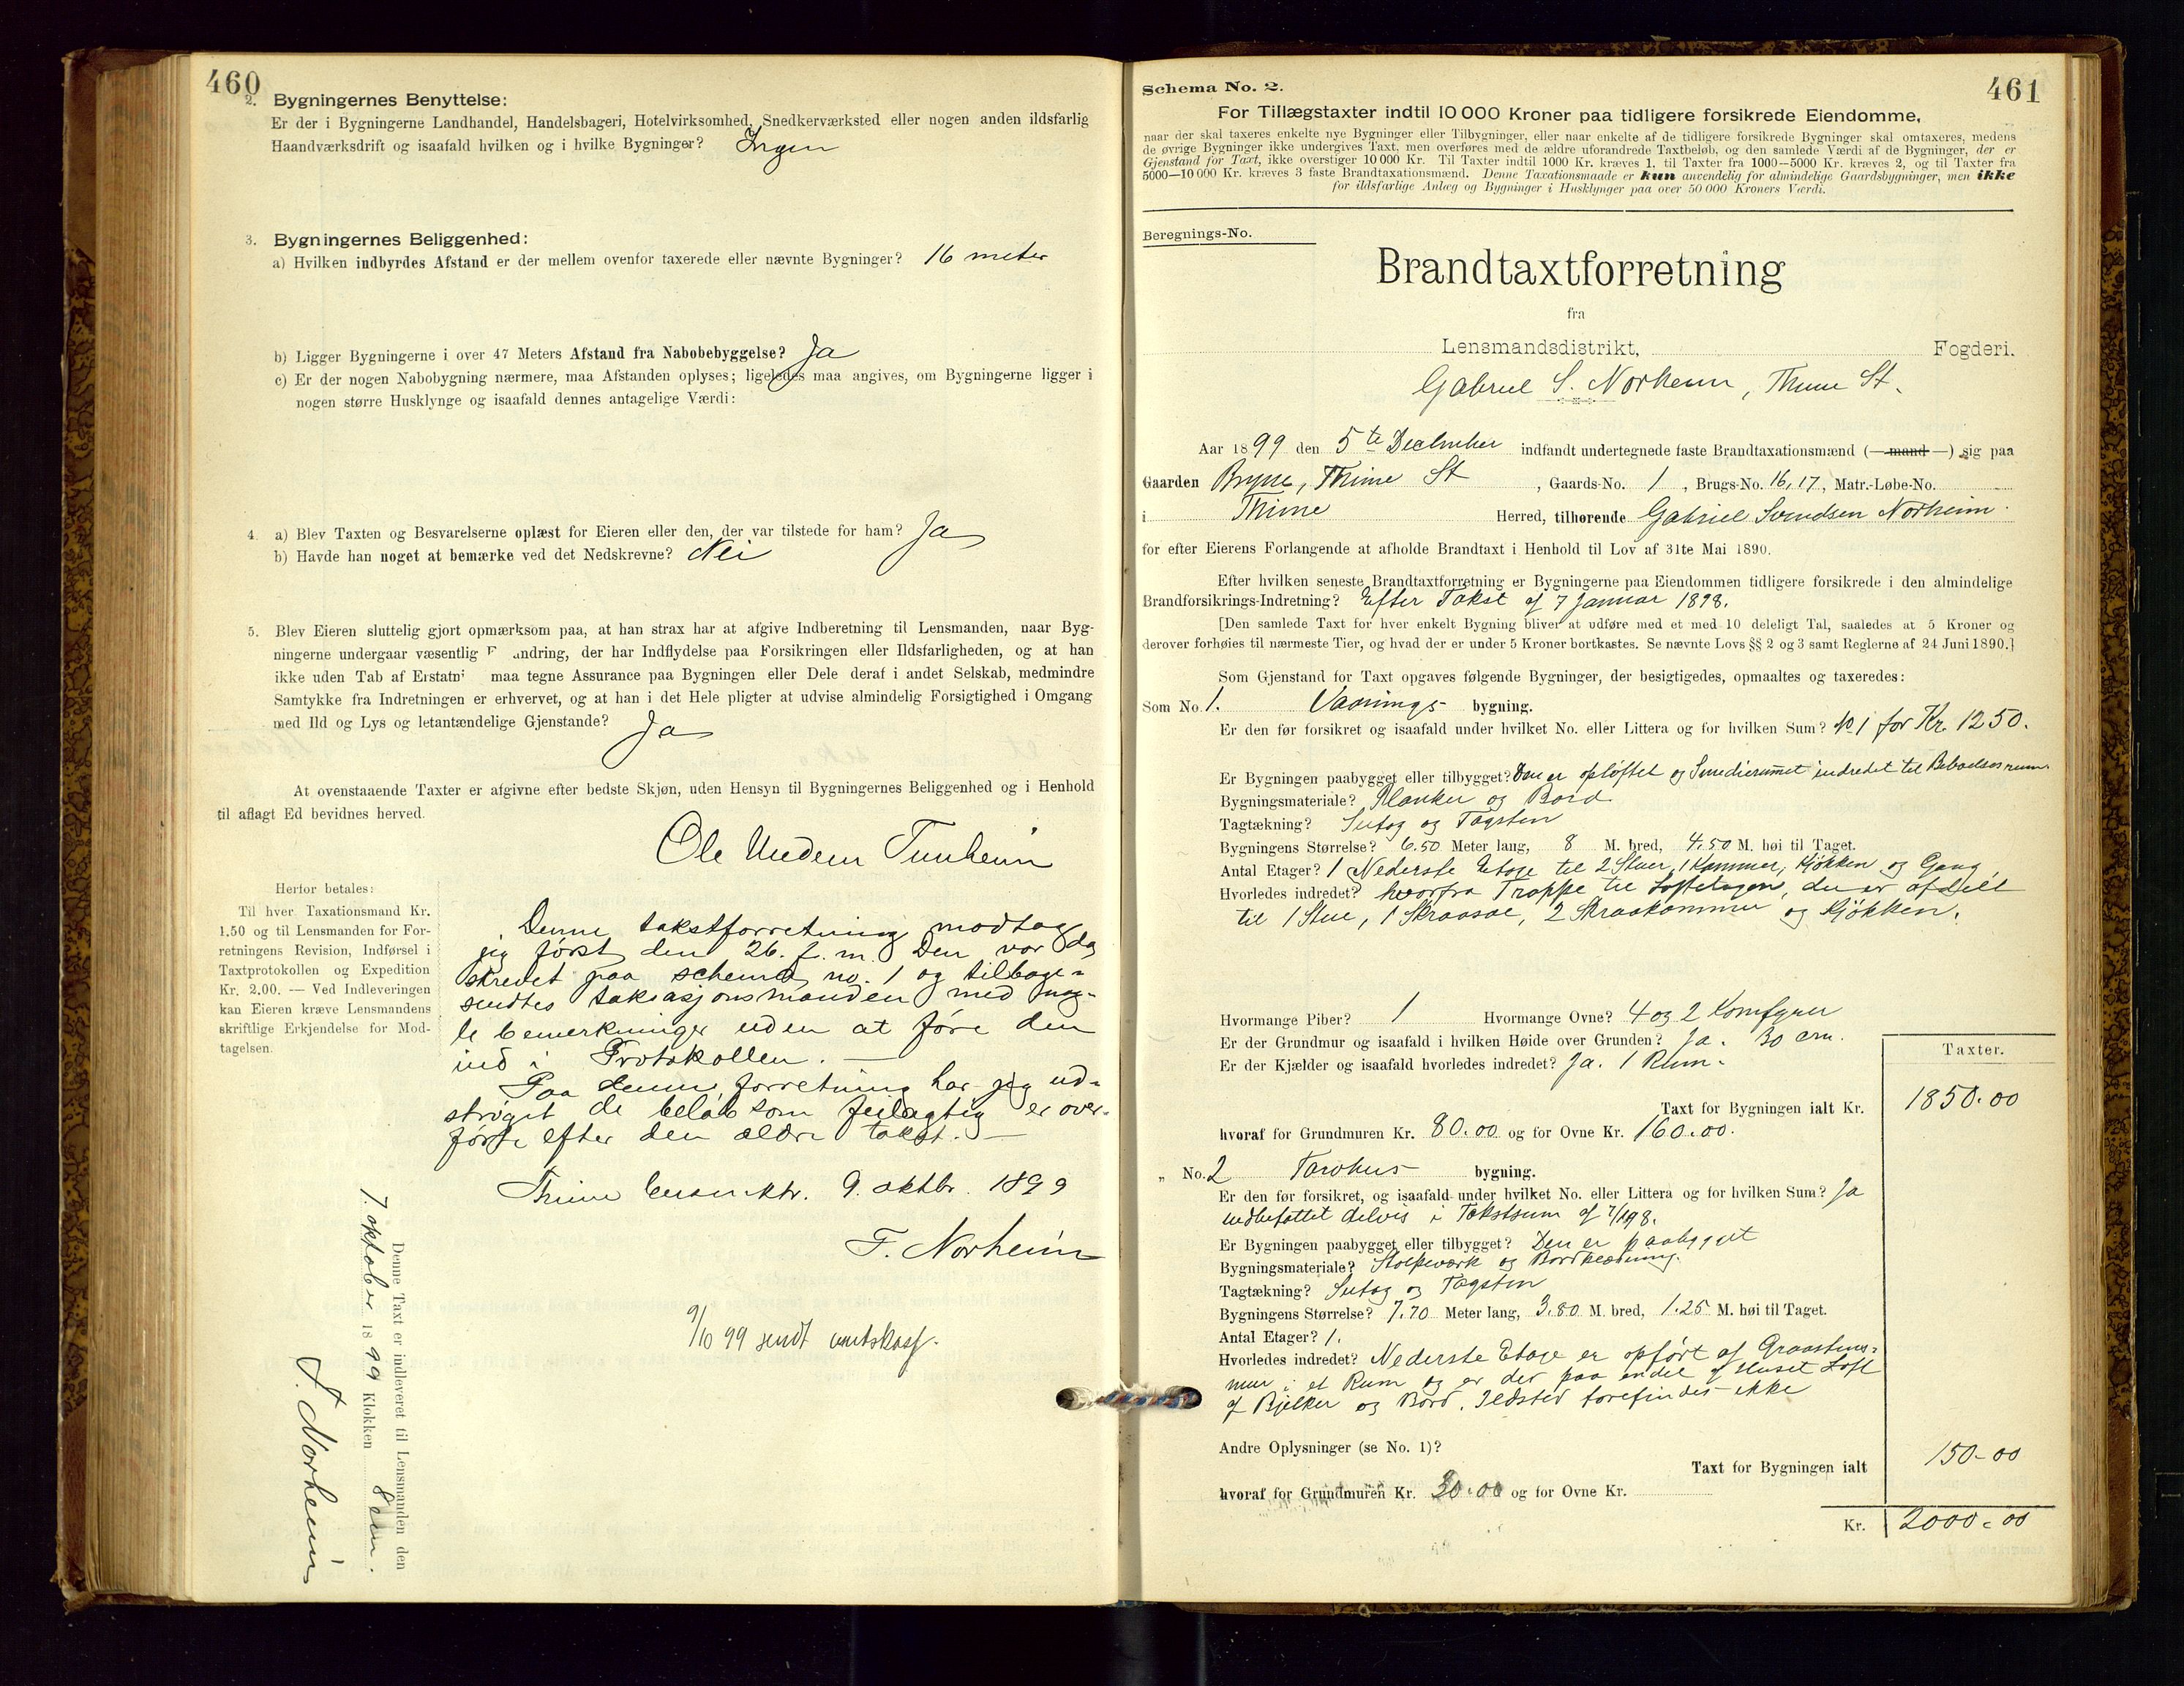 460
2. Bygningernes Benyttelse:
Er der i Bygningerne Landhandel, Handelsbageri, Hotelvirksomhed, Snedkerværksted eller nogen anden ildsfarlig
Haandværksdrift og isaafald hvilken og i hvilke Bygninger? Ingen
3. Bygningernes Beliggenhed:
a) Hvilken indbyrdes Afstand er der mellem ovenfor taxerede eller nævnte Bygninger? 16 meter
b) Ligger Bygningerne i over 47 Meters Afstand fra Nabobebyggelse? Ja
c) Er der nogen Nabobygning nærmere, maa Afstanden oplyses; ligeledes maa angives, om Bygningerne ligger i
nogen større Husklynge og isaafald dennes antagelige Værdi:
4. a) Blev Taxten og Besvarelserne oplæst for Eieren eller den, der var tilstede for ham? Ja
b) Havde han noget at bemærke ved det Nedskrevne? Nei
5. Blev Eieren sluttelig gjort opmærksom paa, at han strax har at afgive Indberetning til Lensmanden, naar Byg-
ningerne undergaar væsentlig F andring, der har Indflydelse paa Forsikringen eller Ildsfarligheden, og at han
ikke uden Tab af Erstatni maa tegne Assurance paa Bygningen eller Dele deraf i andet Selskab, medmindre
Samtykke fra Indretningen er erhvervet, og at han i det Hele pligter at udvise almindelig Forsigtighed i Omgang
med Ild og Lys og letantændelige Gjenstande? Ja
At ovenstaaende Taxter er afgivne efter bedste Skjøn, uden Hensyn til Bygningernes Beliggenhed og i Henhold
til aflagt Ed bevidnes herved.
Ole Tunheim
Herfor betales:
Til hver Taxationsmand Kr.
1.50 og til Lensmanden for For-
retningens Revision, Indførsel i
Taxtprotokollen og Expedition
Kr. 2.00. — Ved Indleveringen
kan Eieren kræve Lensmandens
skriftlige Erkjendelse for Mod-
tagelsen.
Denne takstforretning modtog
jeg først den 26. f. m. Den var da
skrevet paa schema no. 1 og tilbage-
sendtes taksasjonsmanden med nog-
le bemerkninger uden at føre den
ind i Protokollen. —
Paa denne forretning har jeg ud-
strøget de beløb som feilagtig er over-
førte efter den ældre takst. —
Thime 9. oktbr. 1899
T. Norheim
9/10 99 sendt amtskass.
Denne Taxt er indleveret til Lensmanden den
7. oktober 1899 Klokken 8 em.
T. Norheim
461
Schema No. 2.
For Tillægstaxter indtil 10 000 Kroner paa tidligere forsikrede Eiendomme,
naar der skal taxeres enkelte nye Bygninger eller Tilbygninger, eller naar enkelte af de tidligere forsikrede Bygninger skal omtaxeres, medens
de øvrige Bygninger ikke undergives Taxt, men overføres med de ældre uforandrede Taxtbeløb, og den samlede Værdi af de Bygninger, der er
Gjenstand for Taxt, ikke overstiger 10 000 Kr. Til Taxter indtil 1000 Kr. kræves 1, til Taxter fra 1000—5000 Kr. kræves 2, og til Taxter fra
5000—10 000 Kr. kræves 3 faste Brandtaxationsmænd. Denne Taxationsmaade er kun anvendelig for almindelige Gaardsbygninger, men ikke
for ildsfarlige Anlæg og Bygninger i Husklynger paa over 50 000 Kroners Værdi.
Beregnings-No.
Brandtaxtforretning
fra
Lensmandsdistrikt, Fogderi.
Gabriel S. Norheim, Thime St.
Aar 1899 den 5te December indfandt undertegnede faste Brandtaxationsmænd (—mand—) sig paa
Gaarden Bryne, Thime St, Gaards-No. 1, Brugs-No. 16, 17, Matr.-Løbe-No.
i Thime Herred, tilhørende Gabriel Svendsen Norheim
for efter Eierens Forlangende at afholde Brandtaxt i Henhold til Lov af 31te Mai 1890.
Efter hvilken seneste Brandtaxtforretning er Bygningerne paa Eiendommen tidligere forsikrede i den almindelige
Brandforsikrings-Indretning? Efter Takst af 7 Januar 1898.
[Den samlede Taxt for hver enkelt Bygning bliver at udføre med et med 10 deleligt Tal, saaledes at 5 Kroner og
derover forhøies til nærmeste Tier, og hvad der er under 5 Kroner bortkastes. Se nævnte Lovs §§ 2 og 3 samt Reglerne af 24 Juni 1890.]
Som Gjenstand for Taxt opgaves følgende Bygninger, der besigtigedes, opmaaltes og taxeredes:
Som No. 1. Vaanings bygning.
Er den før forsikret og isaafald under hvilket No. eller Littera og for hvilken Sum? No 1 for Kr. 1250.
Er Bygningen paabygget eller tilbygget? Den er opløftet og Smedierummet indredet til Beboelsesrum
Bygningsmateriale? Planker og Bord
Tagtækning? Sutag og Tagsten
Bygningens Størrelse? 6.50 Meter lang, 8 M. bred, 4.50 M. høi til Taget.
Antal Etager? 1 Nederste Etage til 2 Stuer, 1 Kammer, Kjøkken og Gang
Hvorledes indredet? hvorfra Trappe til Loftetagen, der er afdelt
til 1 Stue, 1 Skraasal, 2 Skraakammer og Kjøkken.
Hvormange Piber? 1 Hvormange Ovne? 4 og 2 Komfyrer
Er der Grundmur og isaafald i hvilken Høide over Grunden? Ja. 30 cm.
Er der Kjælder og isaafald hvorledes indredet? Ja. 1 Rum.
Taxter.
Taxt for Bygningen ialt Kr. 1850.00
hvoraf for Grundmuren Kr. 80.00 og for Ovne Kr. 160.00.
„ No. 2 Torvhus bygning.
Er den før forsikret, og isaafald under hvilket No. eller Littera og for hvilken Sum? Ja
indbefattet delvis i Takstsum af 7/1 98.
Er Bygningen paabygget eller tilbygget? Den er paabygget
Bygningsmateriale? Stolpeværk og Bordklædning.
Tagtækning? Sutag og Tagsten
Bygningens Størrelse? 7.70 Meter lang, 3.80 M. bred, 1.25 M. høi til Taget.
Antal Etager? 1.
Hvorledes indredet? Nederste Etage er opført af Graastens-
mur i et Rum og er der paa endel af Huset Loft
af Bjelker og Bord. Ildsted forefindes ikke
Andre Oplysninger (se No. 1)?
Taxt for Bygningen ialt 150-00
hvoraf for Grundmuren Kr. 30.00 og for Ovne Kr.
Kr. 2000-00